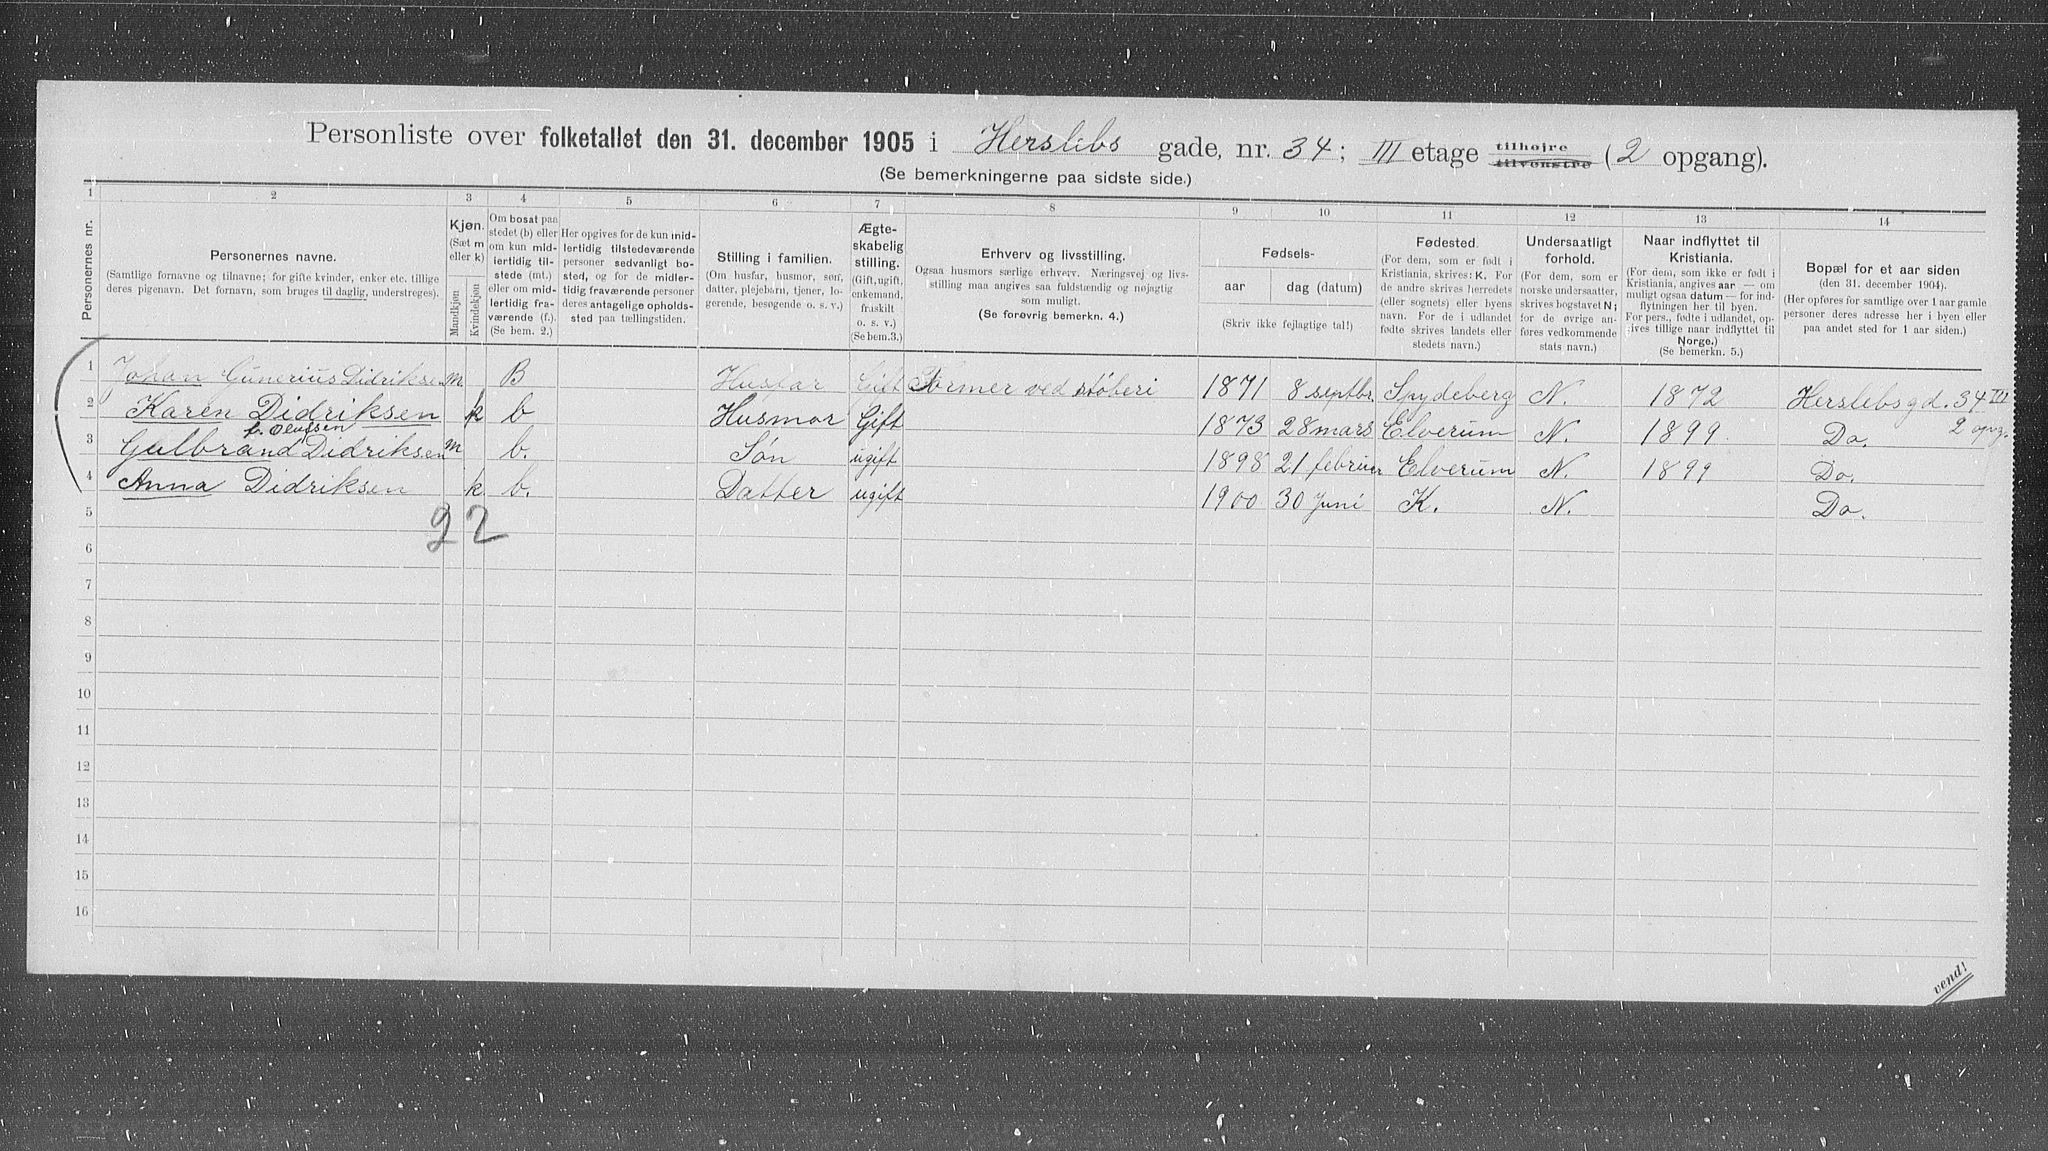 Personliste over folketallet den 31. december 1905 i Herslebs gade, nr. 34; III etage tilhøjre tilvenstre (2 opgang).
(Se bemerkningerne paa sidste side.)
1 2 3 4 5 6 7 8 9 10 11 12 13 14
Personernes nr.
Personernes navne.
(Samtlige fornavne og tilnavne; for gifte kvinder, enker etc. tillige
deres pigenavn. Det fornavn, som bruges til daglig, understreges).
Kjøn.
(Sæt m
eller k)
Mandkjøn
Kvindekjøn
Om bosat paa
stedet (b) eller
om kun mid-
lertidig til-
stede (mt.)
eller om mid-
lertidig fra-
værende (f.).
(Se bem. 2.)
Her opgives for de kun mid-
lertidig tilstedeværende
personer sedvanligt bo-
sted, og for de midler-
tidig fraværende personer
deres antagelige opholds-
sted paa tællingstiden.
Stilling i familien.
(Om husfar, husmor, søn,
datter, plejebarn, tjener, lo-
gerende, besøgende o. s. v.)
Ægte-
skabelig
stilling.
(Gift, ugift,
enkemand,
fraskilt
o. s. v.)
(Se bem.3.)
Erhverv og livsstilling.
Ogsaa husmors særlige erhverv. Næringsvej og livs-
stilling maa angives saa fuldstændig og nøjagtig
som muligt.
(Se forøvrig bemerkn. 4.)
Fødsels-
aar
dag (datum)
(Skriv ikke fejlagtige tal!)
Fødested.
(For dem, som er født i
Kristiania, skrives: K. For
de andre skrives herredets
(eller sognets) eller byens
navn. For de i udlandet
fødte skrives landets eller
stedets navn.)
Undersaatligt
forhold.
(For dem, som er
norske undersaatter,
skrives bogstavet N;
for de øvrige an-
føres vedkommende
stats navn.)
Naar indflyttet til
Kristiania.
(For dem, som ikke er født i
Kristiania, angives aar — om
muligt ogsaa datum — for ind-
flytningen her til byen.
For pers., fødte i udlandet, op-
gives tillige naar indflyttet til
Norge.)
(Se bemerkn. 5.)
Bopæl for et aar siden
(den 31. december 1904).
(Her opføres for samtlige over 1 aar gamle
personer deres adresse her i byen eller
paa andet sted for 1 aar siden.)
1 Johan Gunerius Didriksen m B Husfar Gift Former ved støberi 1871 8 septbr. Spydeberg N. 1872 Herslebsgd. 34 III
2 Karen Didriksen k b Husmor Gift 1873 28 mars Elverum N. 1899 Do. 2 opg.
f. Olufsen
3 Gulbrand Didriksen m b. Søn ugift 1898 21 februar Elverum N. 1899 Do.
4 Anna Didriksen k b. Datter ugift 1900 30 Juni K. N. Do.
5 2 2
6
7
8
9
10
11
12
13
14
15
16
vend!